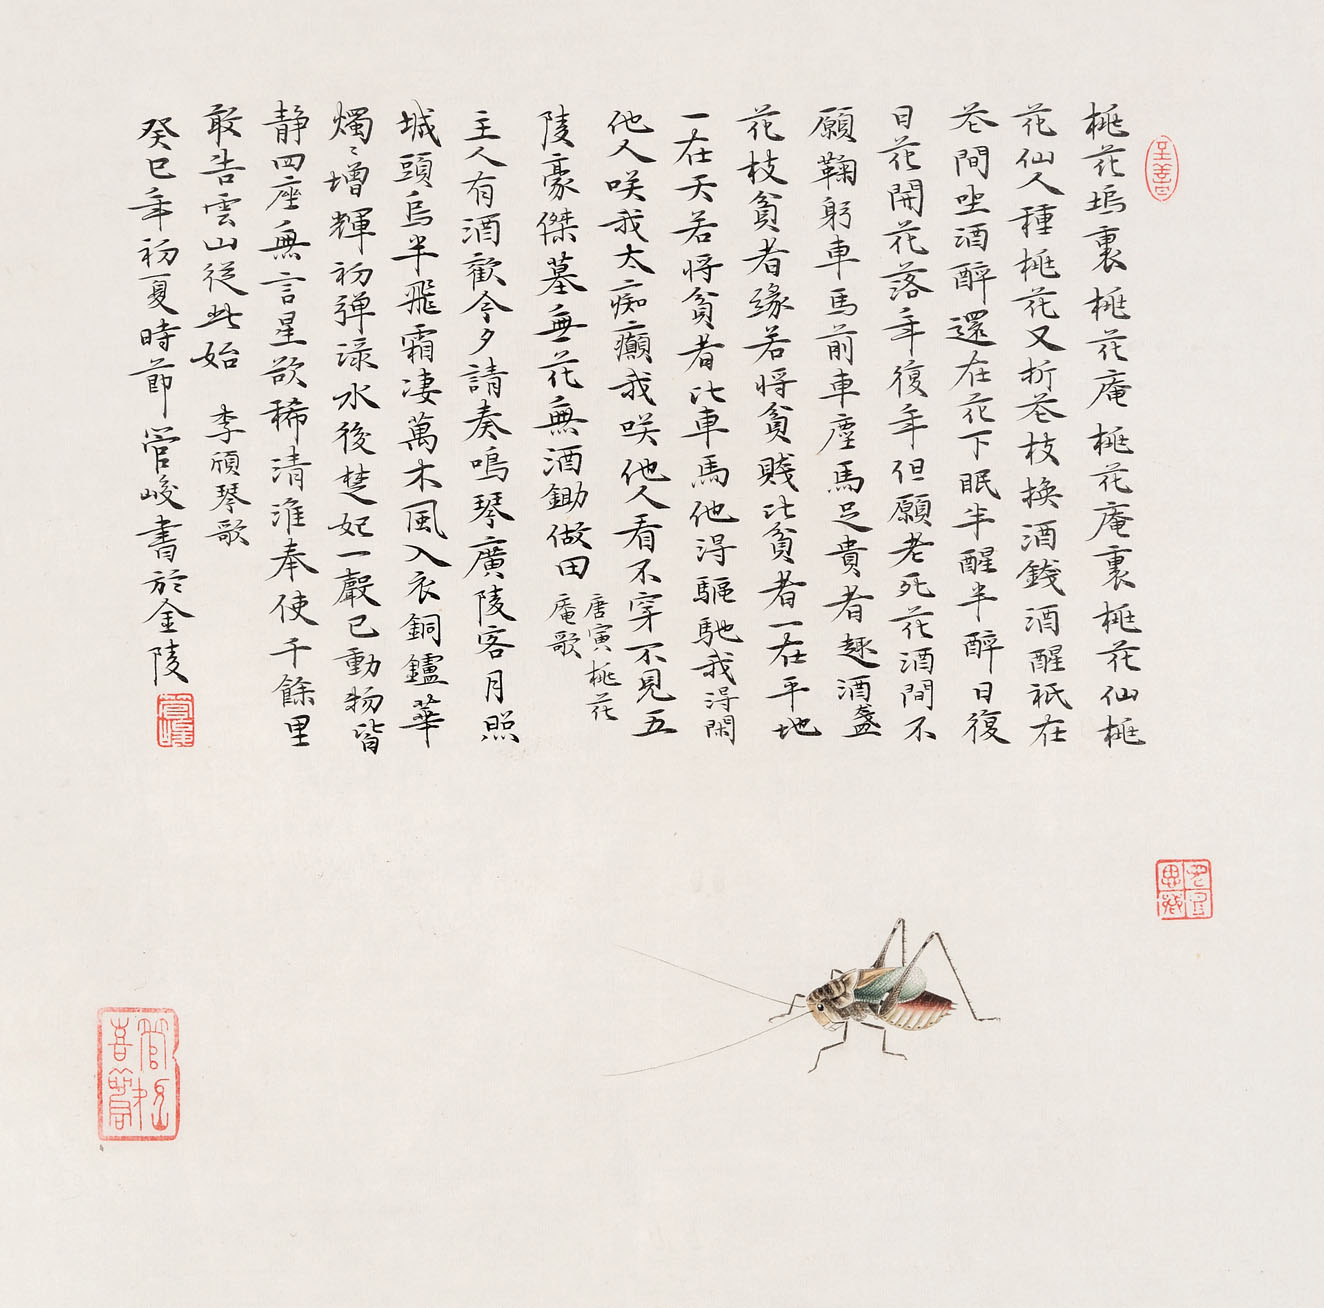 桃花塢裏桃花庵桃花庵裏桃花仙桃
花仙人種桃花又折花枝換酒錢酒醒祇在
花間坐酒醉還在花下眠半醒半醉日復
日花開花落年復年但願老死花酒間不
願鞠躬車馬前車塵馬足貴者趣酒盞
花枝貧者緣若將貧賤比貧者一在平地
一在天若將貧者比車馬他得驅馳我得閑
他人咲我太痴癲我咲他人看不穿不見五
陵豪傑墓無花無酒鋤做田
唐寅桃花
庵歌
主人有酒歡今夕請奏鳴琴廣陵客月照
城頭烏半飛霜凄萬木風入衣銅鑪華
燭〻增輝初弹渌水後楚妃一聲已動物皆
静四座無言星欲稀清淮奉使千餘里
敢告雲山從此始 李頎琴歌
癸巳年初夏時節 管峻書於金陵
至善
管峻